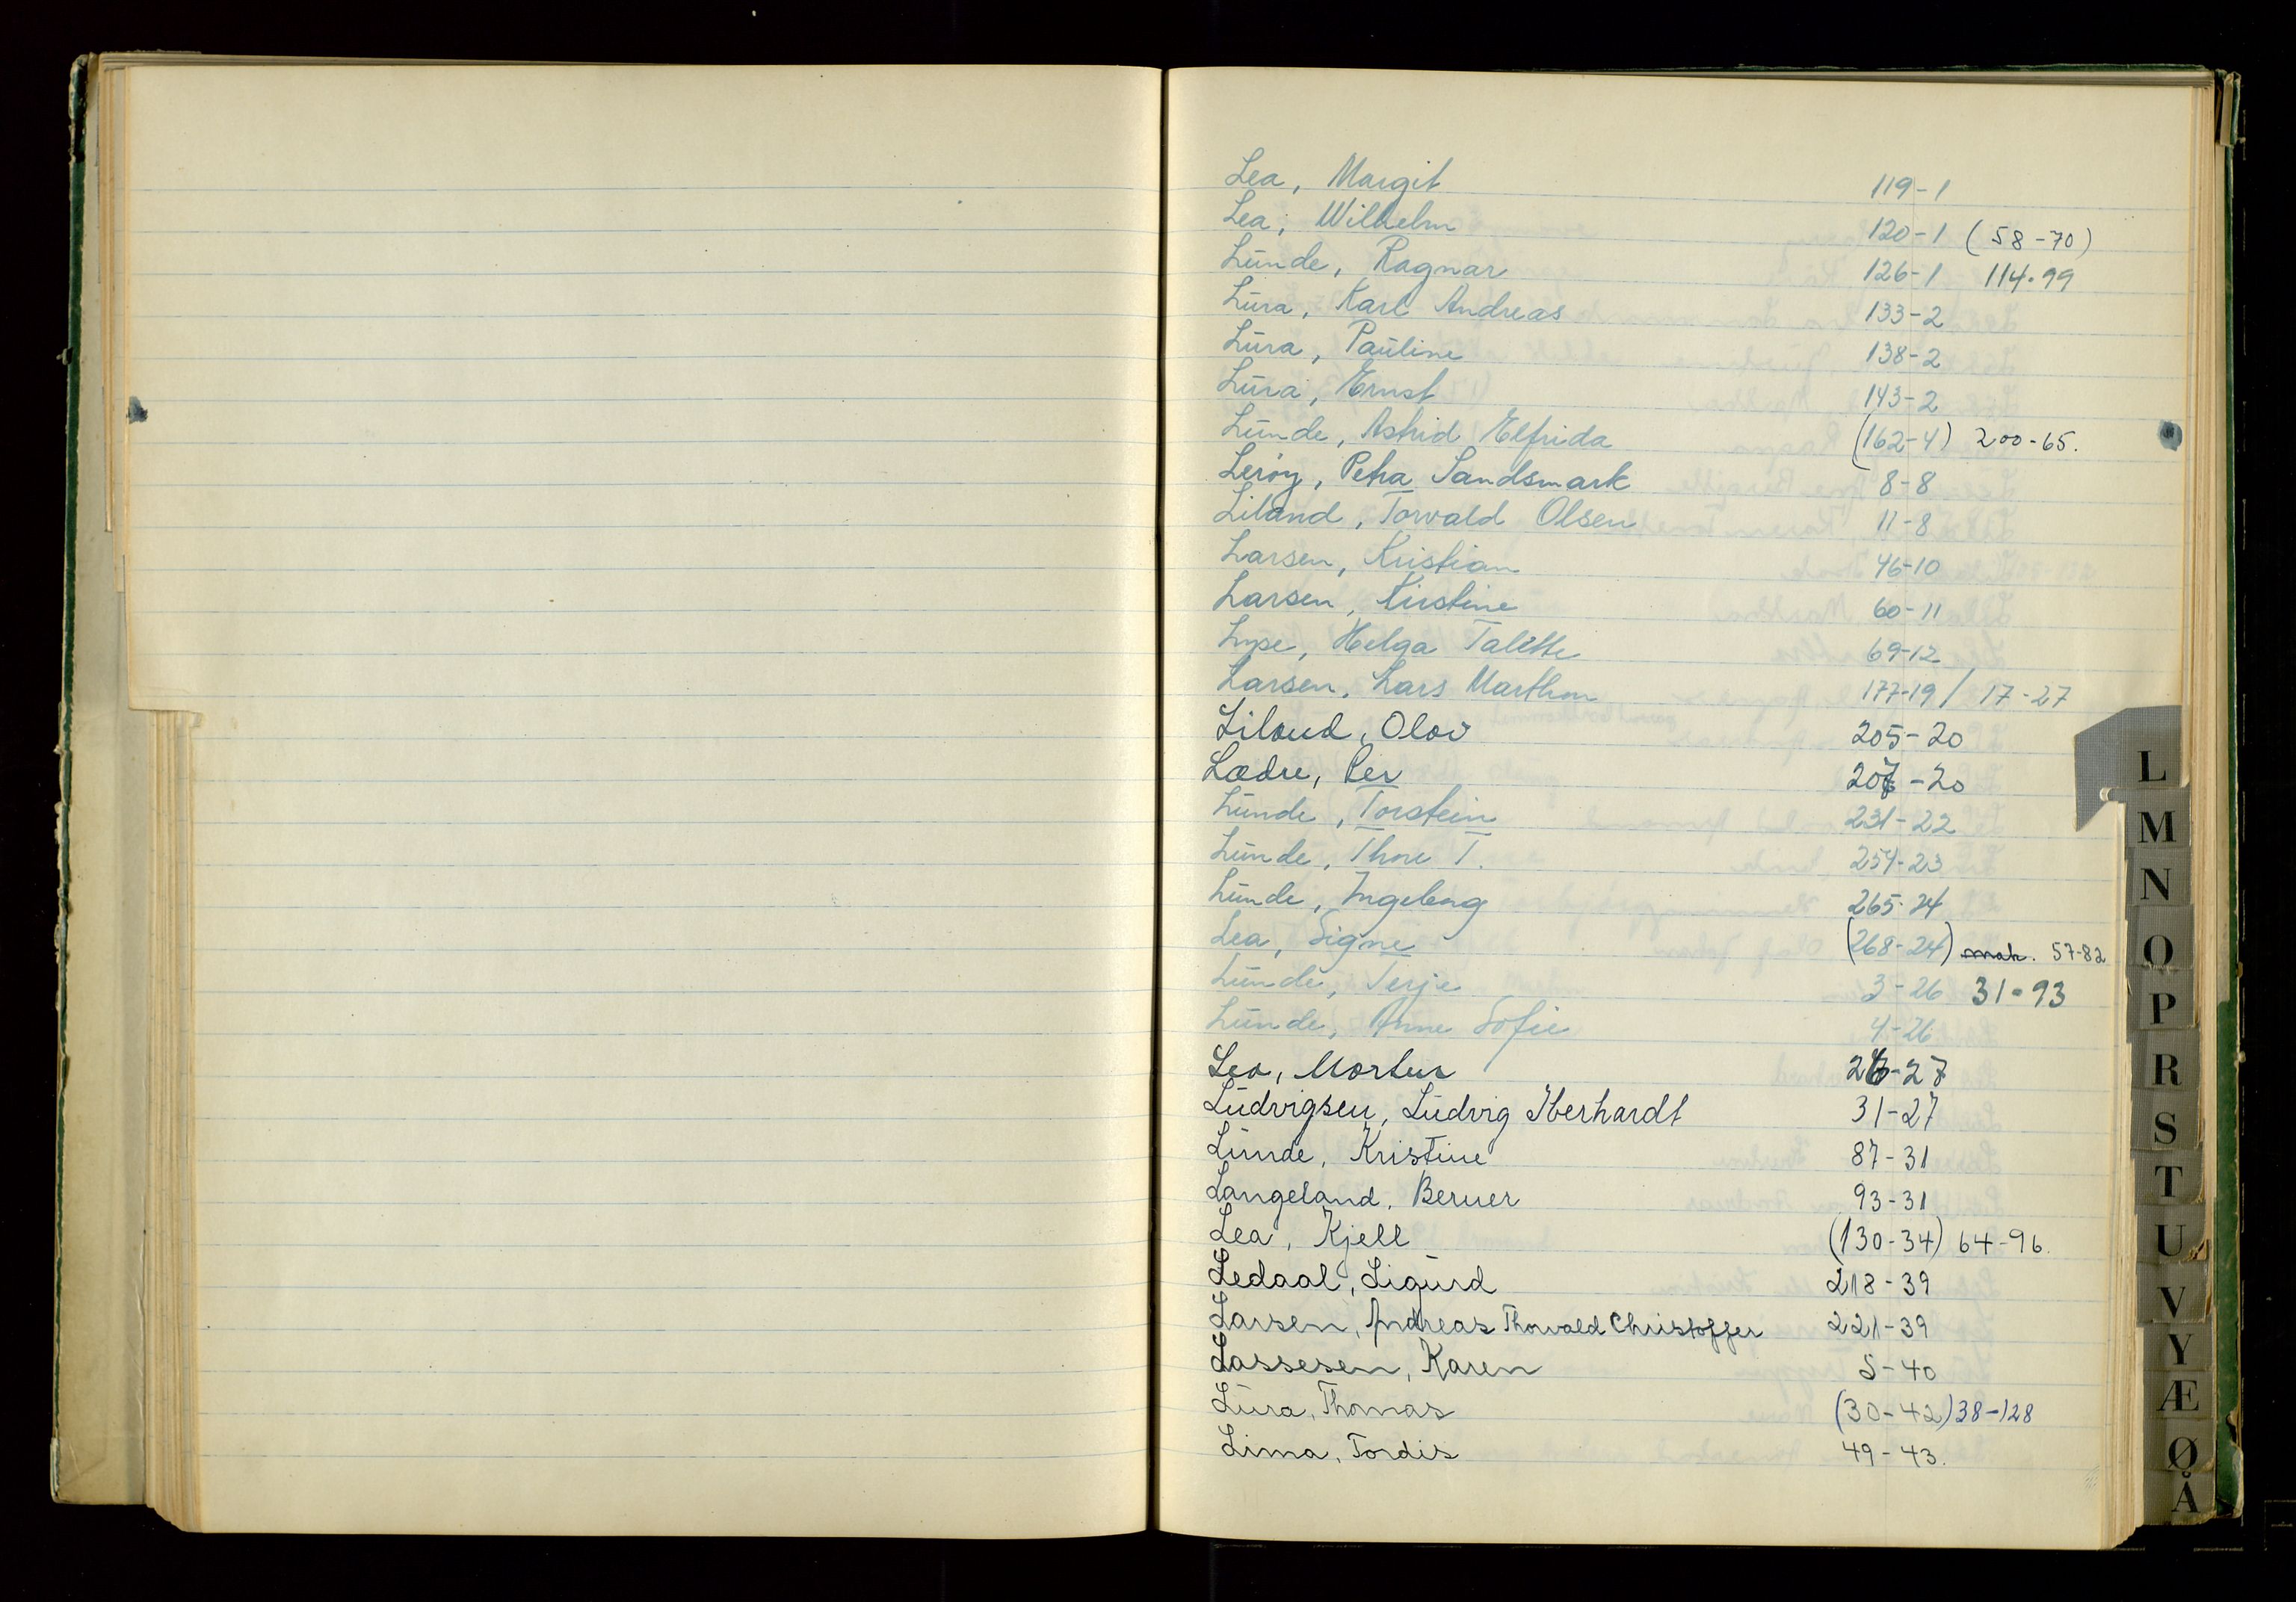 Lea, Margit 119-1
Lea, Wilhelm 120-1 (58-70)
Lunde, Ragnar 126-1 114-99
Lura, Karl Andreas 133-2
Lura, Pauline 138-2
Lura, Ernst 143-2
Lunde, Astrid Elfrida (162-4) 200-65.
Lerøy, Petra Sandsmark 8-8
Liland, Torvald Olsen 11-8
Larsen, Kristian 46-10
Larsen, Kirstine 60-11
Lyse, Helga Talette 69-12
Larsen, Lars Marthon 177-19/ 17-27
Liland, Olav 205-20
Lædre, Per 207-20
Lunde, Torstein 231-22
Lunde, Thore T. 254-23
Lunde, Ingeborg 265-24
Lea, Signe (268-24) mak. 57-82
Lunde, Terje 3-26 31-93
Lunde, Anne Sofie 4-26
Lea, Morten -27
Ludvigsen, Ludvig Eberhardt 31-27
Lunde, Kristine 87-31
Langeland, Berner 93-31
Lea, Kjell (130-34) 64-96.
Ledaal, Sigurd 218-39
Larsen, Andreas Thorvald Christoffer 221-39
Lassesen, Karen 5-40
Lura, Thomas (30-42) 38-128
Lima, Tordis 49-43.
L
M
N
O
P
R
S
T
U
V
Y
Æ
Ø
Å